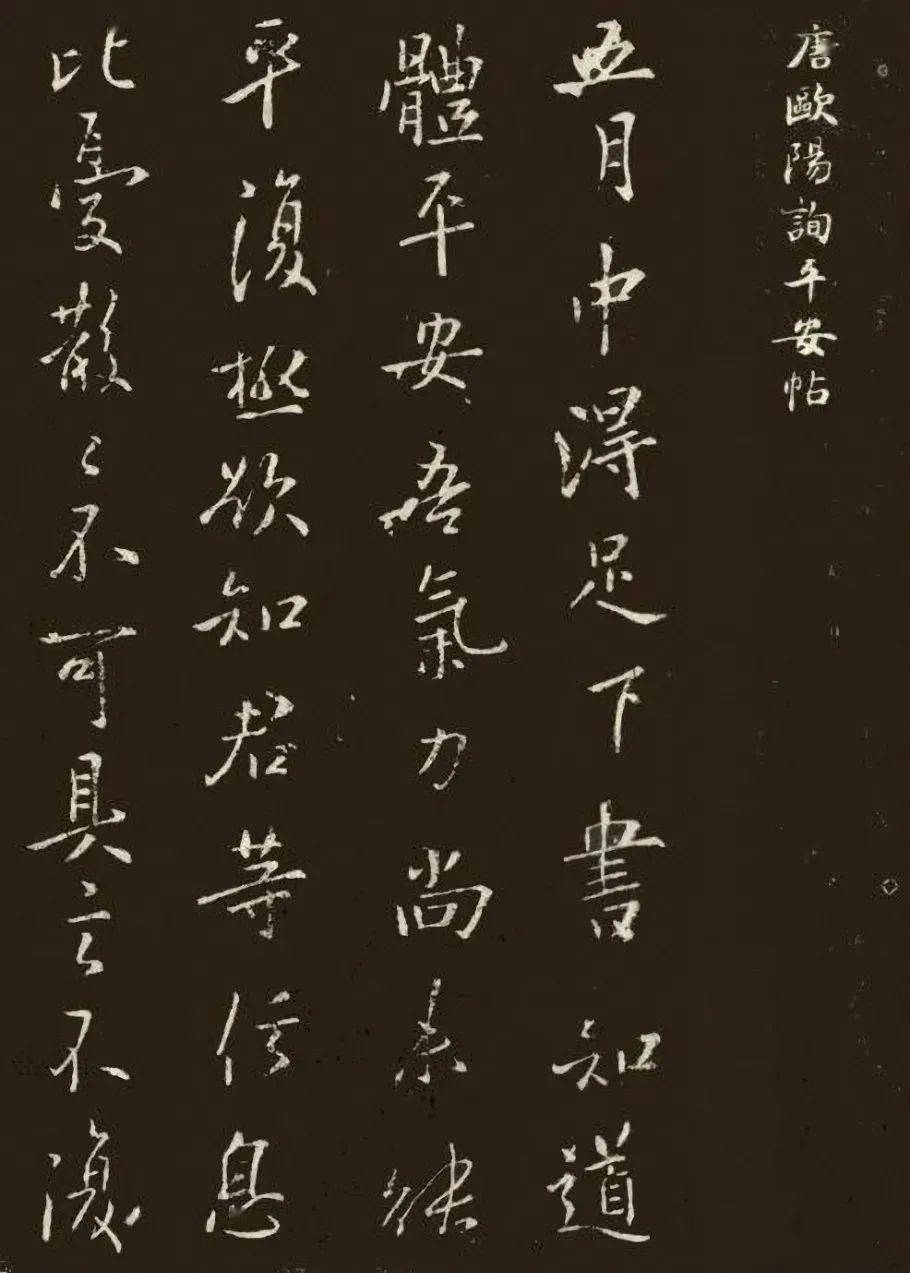 唐歐陽詢平安帖
五月中得足下書知道
體平安吾氣力尚未能
平復極欲知君等信息
比憂散〻不可具言不復